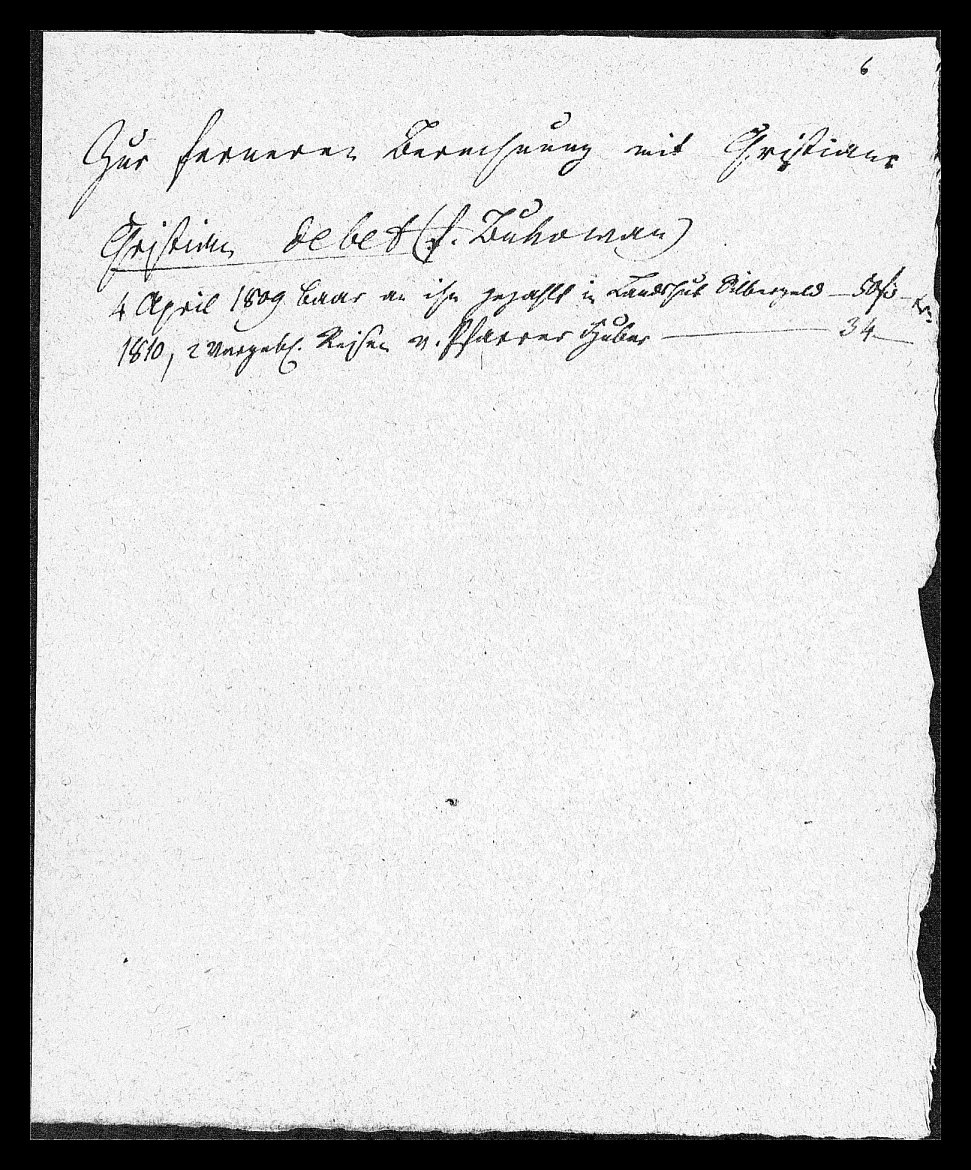 6
Zur ferneren Berechnung mit Christian
Christian debet (f. Bukowan)
4 April 1809 baar an ihn gezahlt in Landshut Silbergeld — 50 f
1810, 2 vergebl. Reisen v. Pfarrer Huber — 34 —